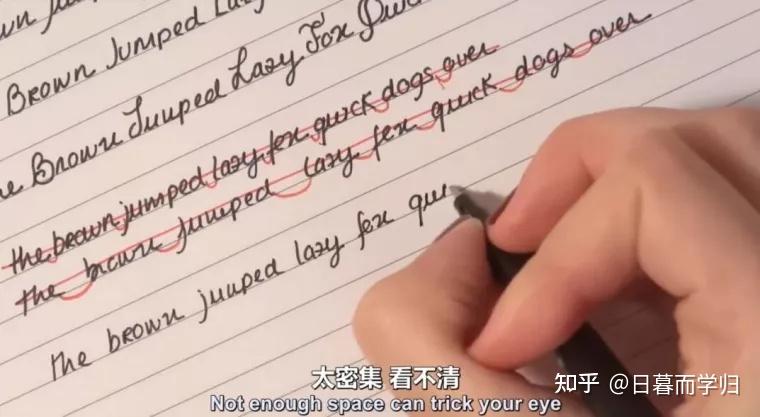 Brown Jumped Lazy
Brown Jumped Lazy Fox Quick
the brown jumped lazy fox quick dogs over
the brown jumped lazy fox quick dogs over
the brown jumped lazy fox qui
太密集 看不清
Not enough space can trick your eye
知乎 @日暮而学归